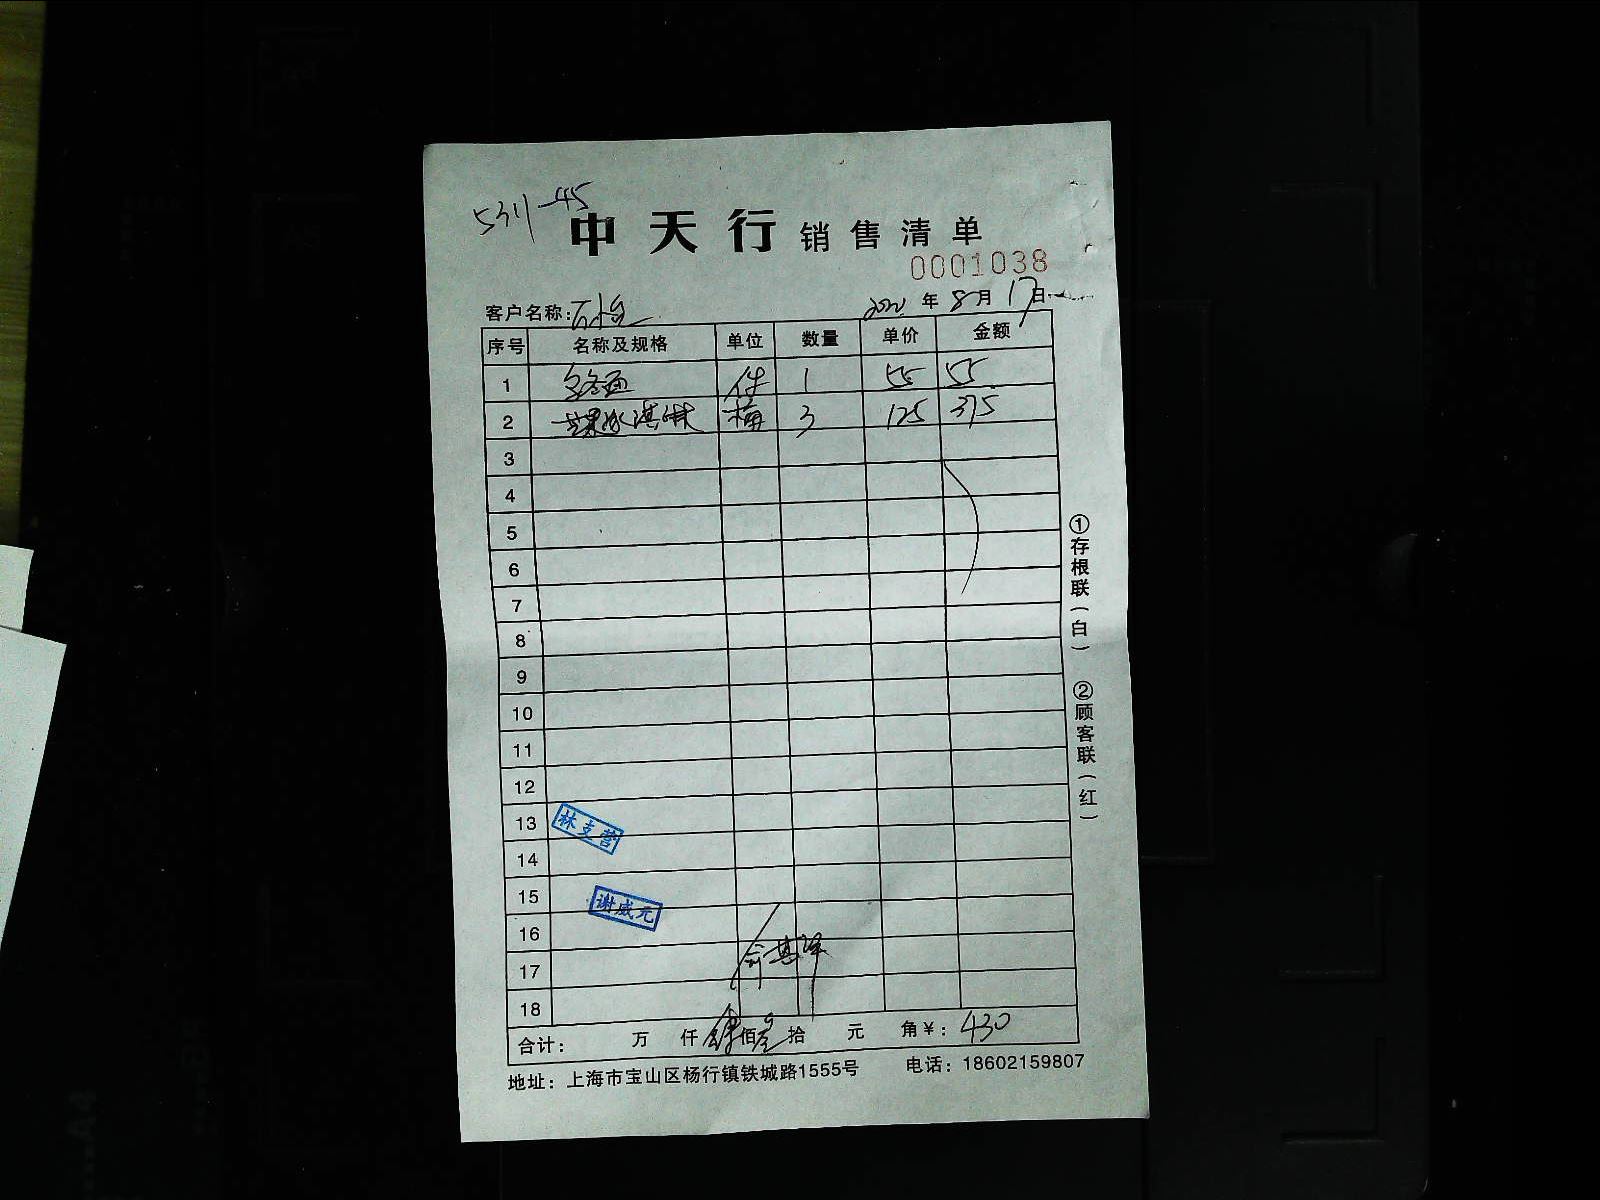 5311-45
中天行 销售清单
0001038
客户名称: 年 8月 17日
序号 名称及规格 单位 数量 单价 金额
1 件 1 55 55
2 冰淇淋 桶 3 125 375
3
4
5
6
7
8
9
10
11
12
13 林支营
14
15 谢威元
16
17
18
合计: 万 仟 肆佰叁拾 元 角¥: 430
地址: 上海市宝山区杨行镇铁城路1555号 电话: 18602159807
①存根联(白) ②顾客联(红)